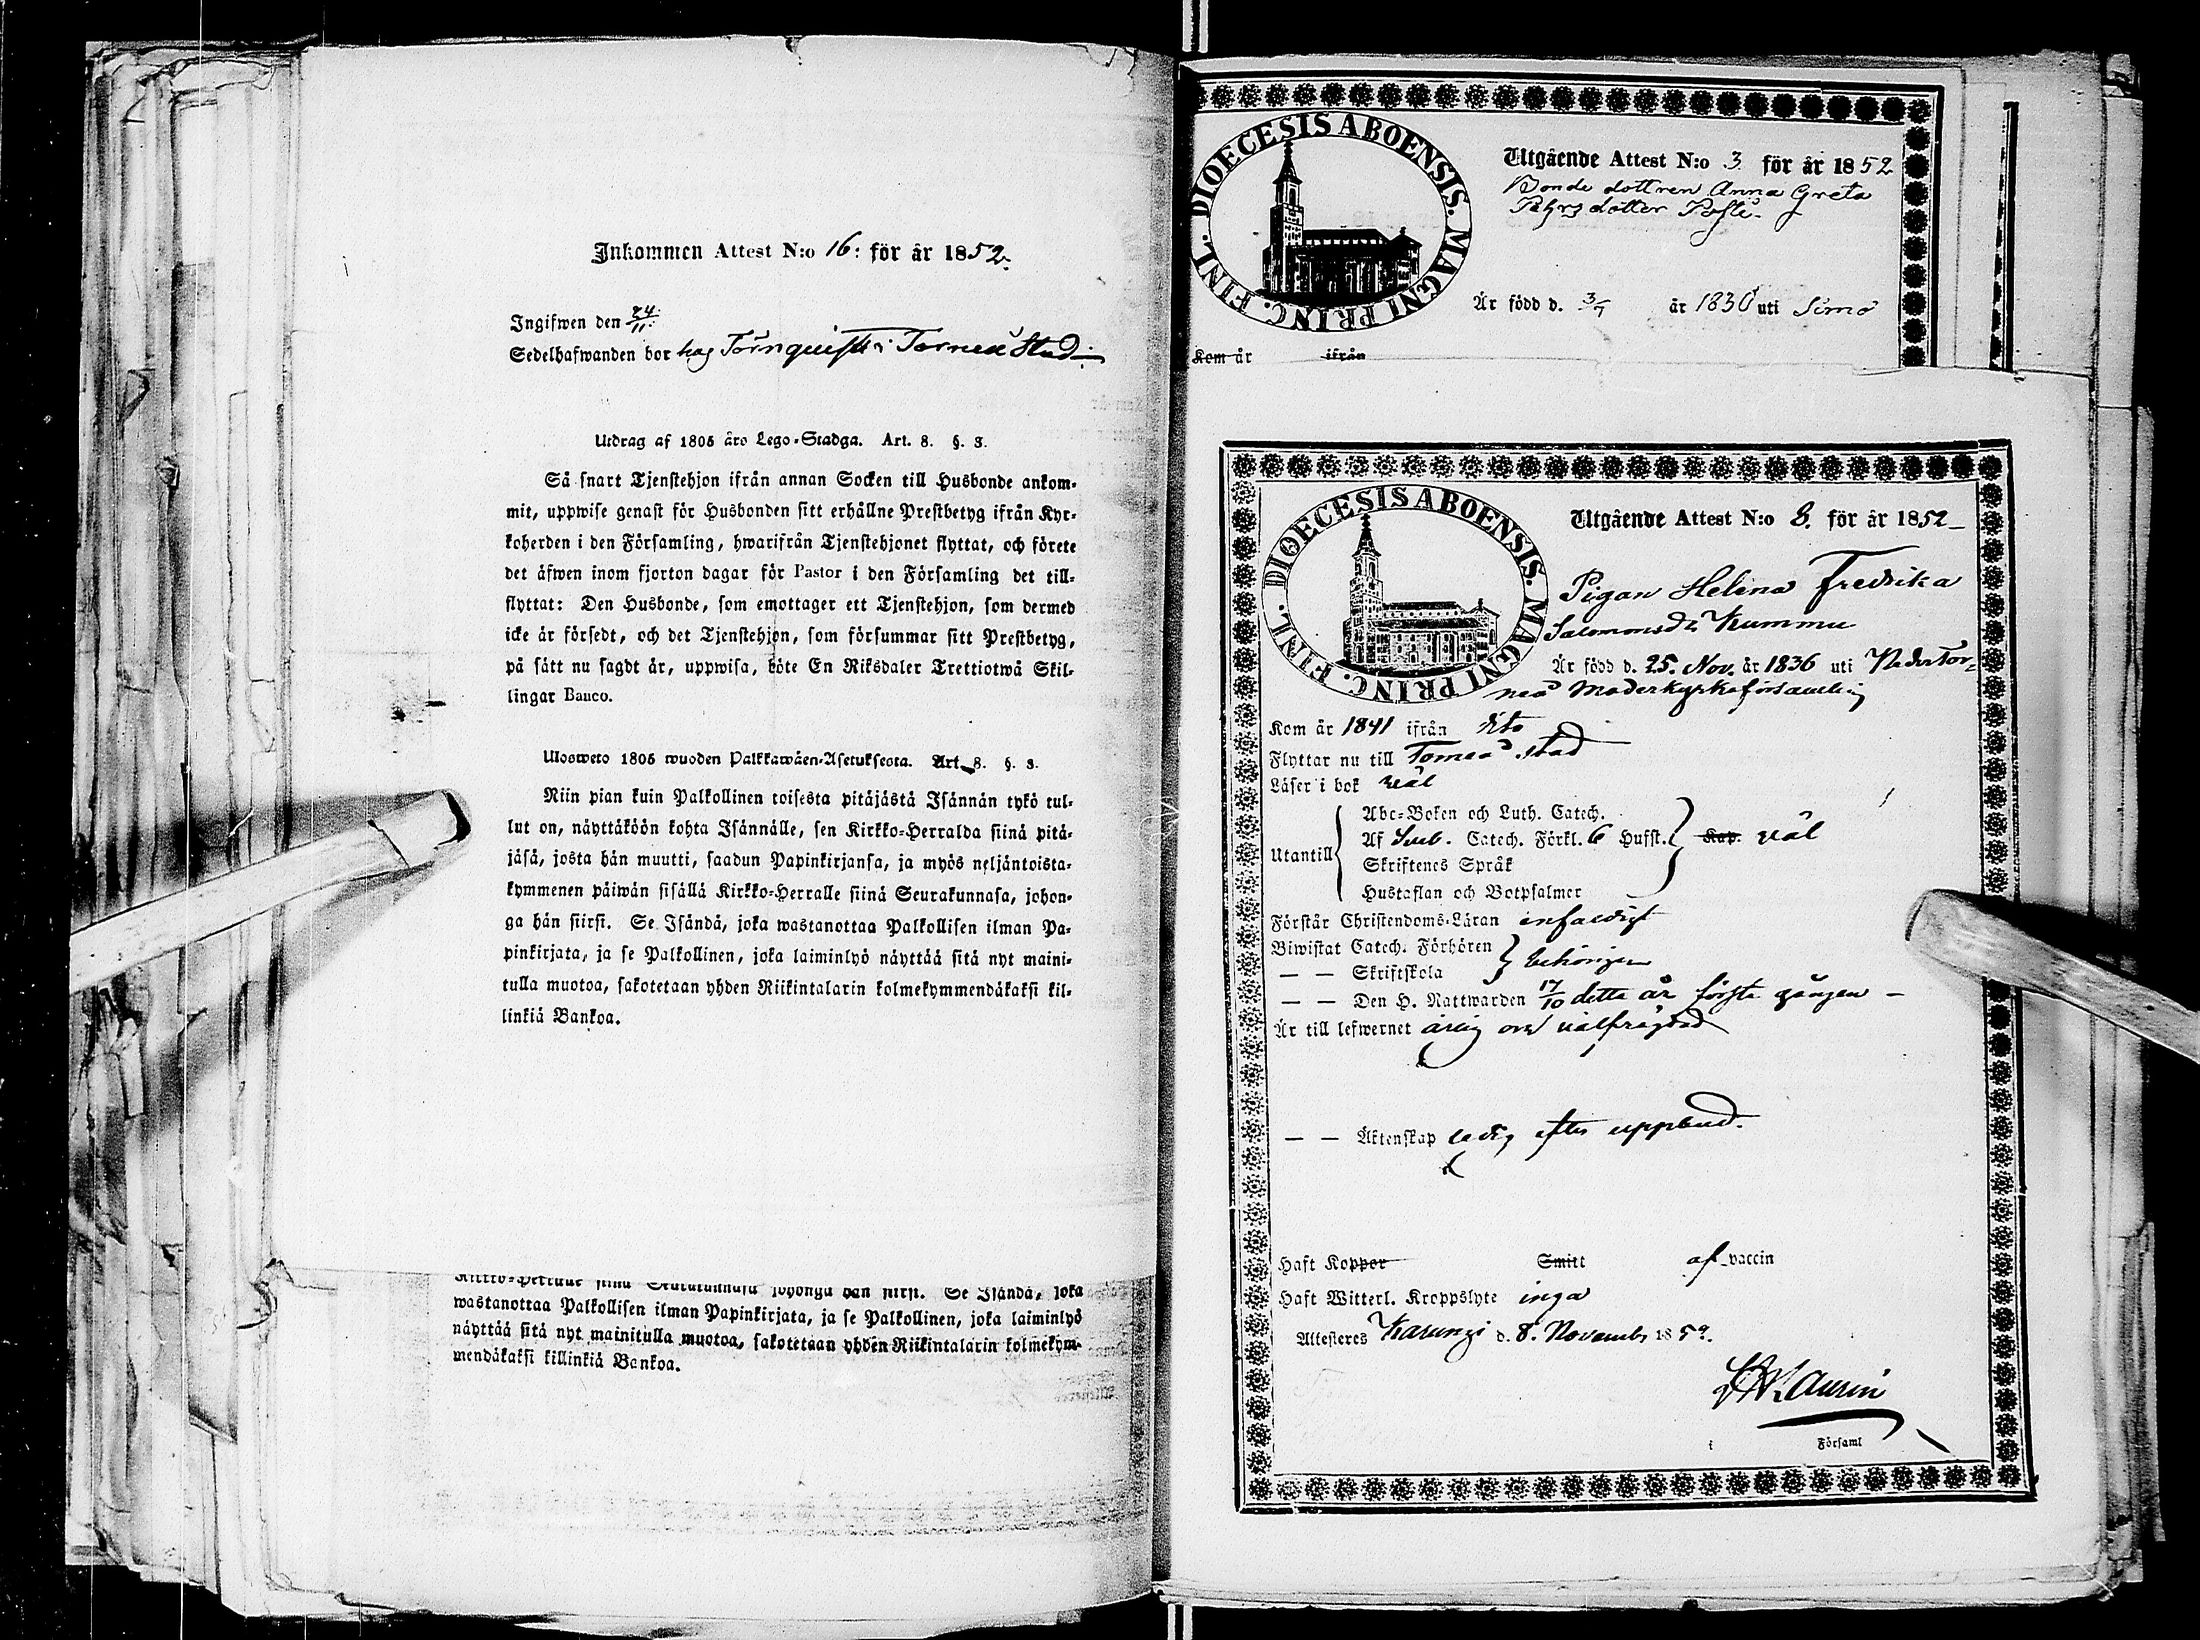 Inkommen Attest N:o 16: för år 1852.
Ingifwen den 24/11:
Sedelhafwanden bor hos Törnquist i Torneå Stad
Utdrag af 1805 års Lego-Stadga. Art. 8. §. 3.
Så snart Tjenstehjon ifrån annan Socken till Husbonde ankom-
mit, uppwise genast för Husbonden sitt erhållne Prestbetyg ifrån Kyr-
koherden i den Församling, hwarifrån Tjenstehjonet flyttat, och förete
det äfwen inom fjorton dagar för Pastor i den Församling det till-
flyttat: Den Husbonde, som emottager ett Tjenstehjon, som dermed
icke är försedt, och det Tjenstehjon, som försummar sitt Prestbetyg,
på sätt nu sagdt är, uppwisa, böte En Riksdaler Trettiotwå Skil-
lingar Banco.
Ulosweto 1805 wuoden Palkkawäen-Asetuksesta. Art. 8. §. 3.
Niin pian kuin Palkollinen toisesta pitäjästä Isännän tykö tul-
lut on, näyttäköön kohta Isännälle, sen Kirkko-Herralda siinä pitä-
jäsä, josta hän muutti, saadun Papinkirjansa, ja myös neljäntoista-
kymmenen päiwän sisällä Kirkko-Herralle siinä Seurakunnasa, johon-
ga hän siirsi. Se Isändä, joka wastanottaa Palkollisen ilman Pa-
pinkirjata, ja se Palkollinen, joka laiminlyö näyttää sitä nyt maini-
tulla muotoa, sakotetaan yhden Riikintalarin kolmekymmendäkaksi kil-
linkiä Bankoa.
Kirkko-Herralle siinä Seurakunnasa johonga hän siirsi. Se Isändä, joka
wastanottaa Palkollisen ilman Papinkirjata, ja se Palkollinen, joka laiminlyö
näyttää sitä nyt mainitulla muotoa, sakotetaan yhden Riikintalarin kolmekym-
mendäkaksi killinkiä Bankoa.
DIOECESIS ABOENSIS. MAGNI PRINC. FINL.
Utgående Attest N:o 3 för år 1852
Bonde dottren Anna Greta
Pehrsdotter
Är född d. 3/7 år 1830 uti Simo
Kom år ifrån
DIOECESIS ABOENSIS. MAGNI PRINC. FINL.
Utgående Attest N:o 8. för år 1852
Pigan Helena Fredrika
Salomonsdr Kummu
Är född d. 25. Nov. år 1836 uti Neder Tor-
neå Moderkyrkoförsamling
Kom år 1841 ifrån dito
Flyttar nu till Torneå stad
Läser i bok väl
Utantill
Abc-Boken och Luth. Catech.
Af Sveb. Catech. Förkl. 6 Hufst. Kap. väl
Skriftenes Språk
Hustaflan och Botpsalmer
Förstår Christendoms-Läran enfaldigt
Biwistat Catech. Förhören
— — Skriftskola behörigen
— — Den H. Nattwarden 17/10 detta år första gången
Är till lefwernet ärlig och välfrägdad
— — Äktenskap ledig efter uppbud.
Haft Koppor Smitt af vaccin
Haft Witterl. Kroppslyte inga
Attesteres Karungi d. 8. Novembr 1852.
Laurin
i Församl